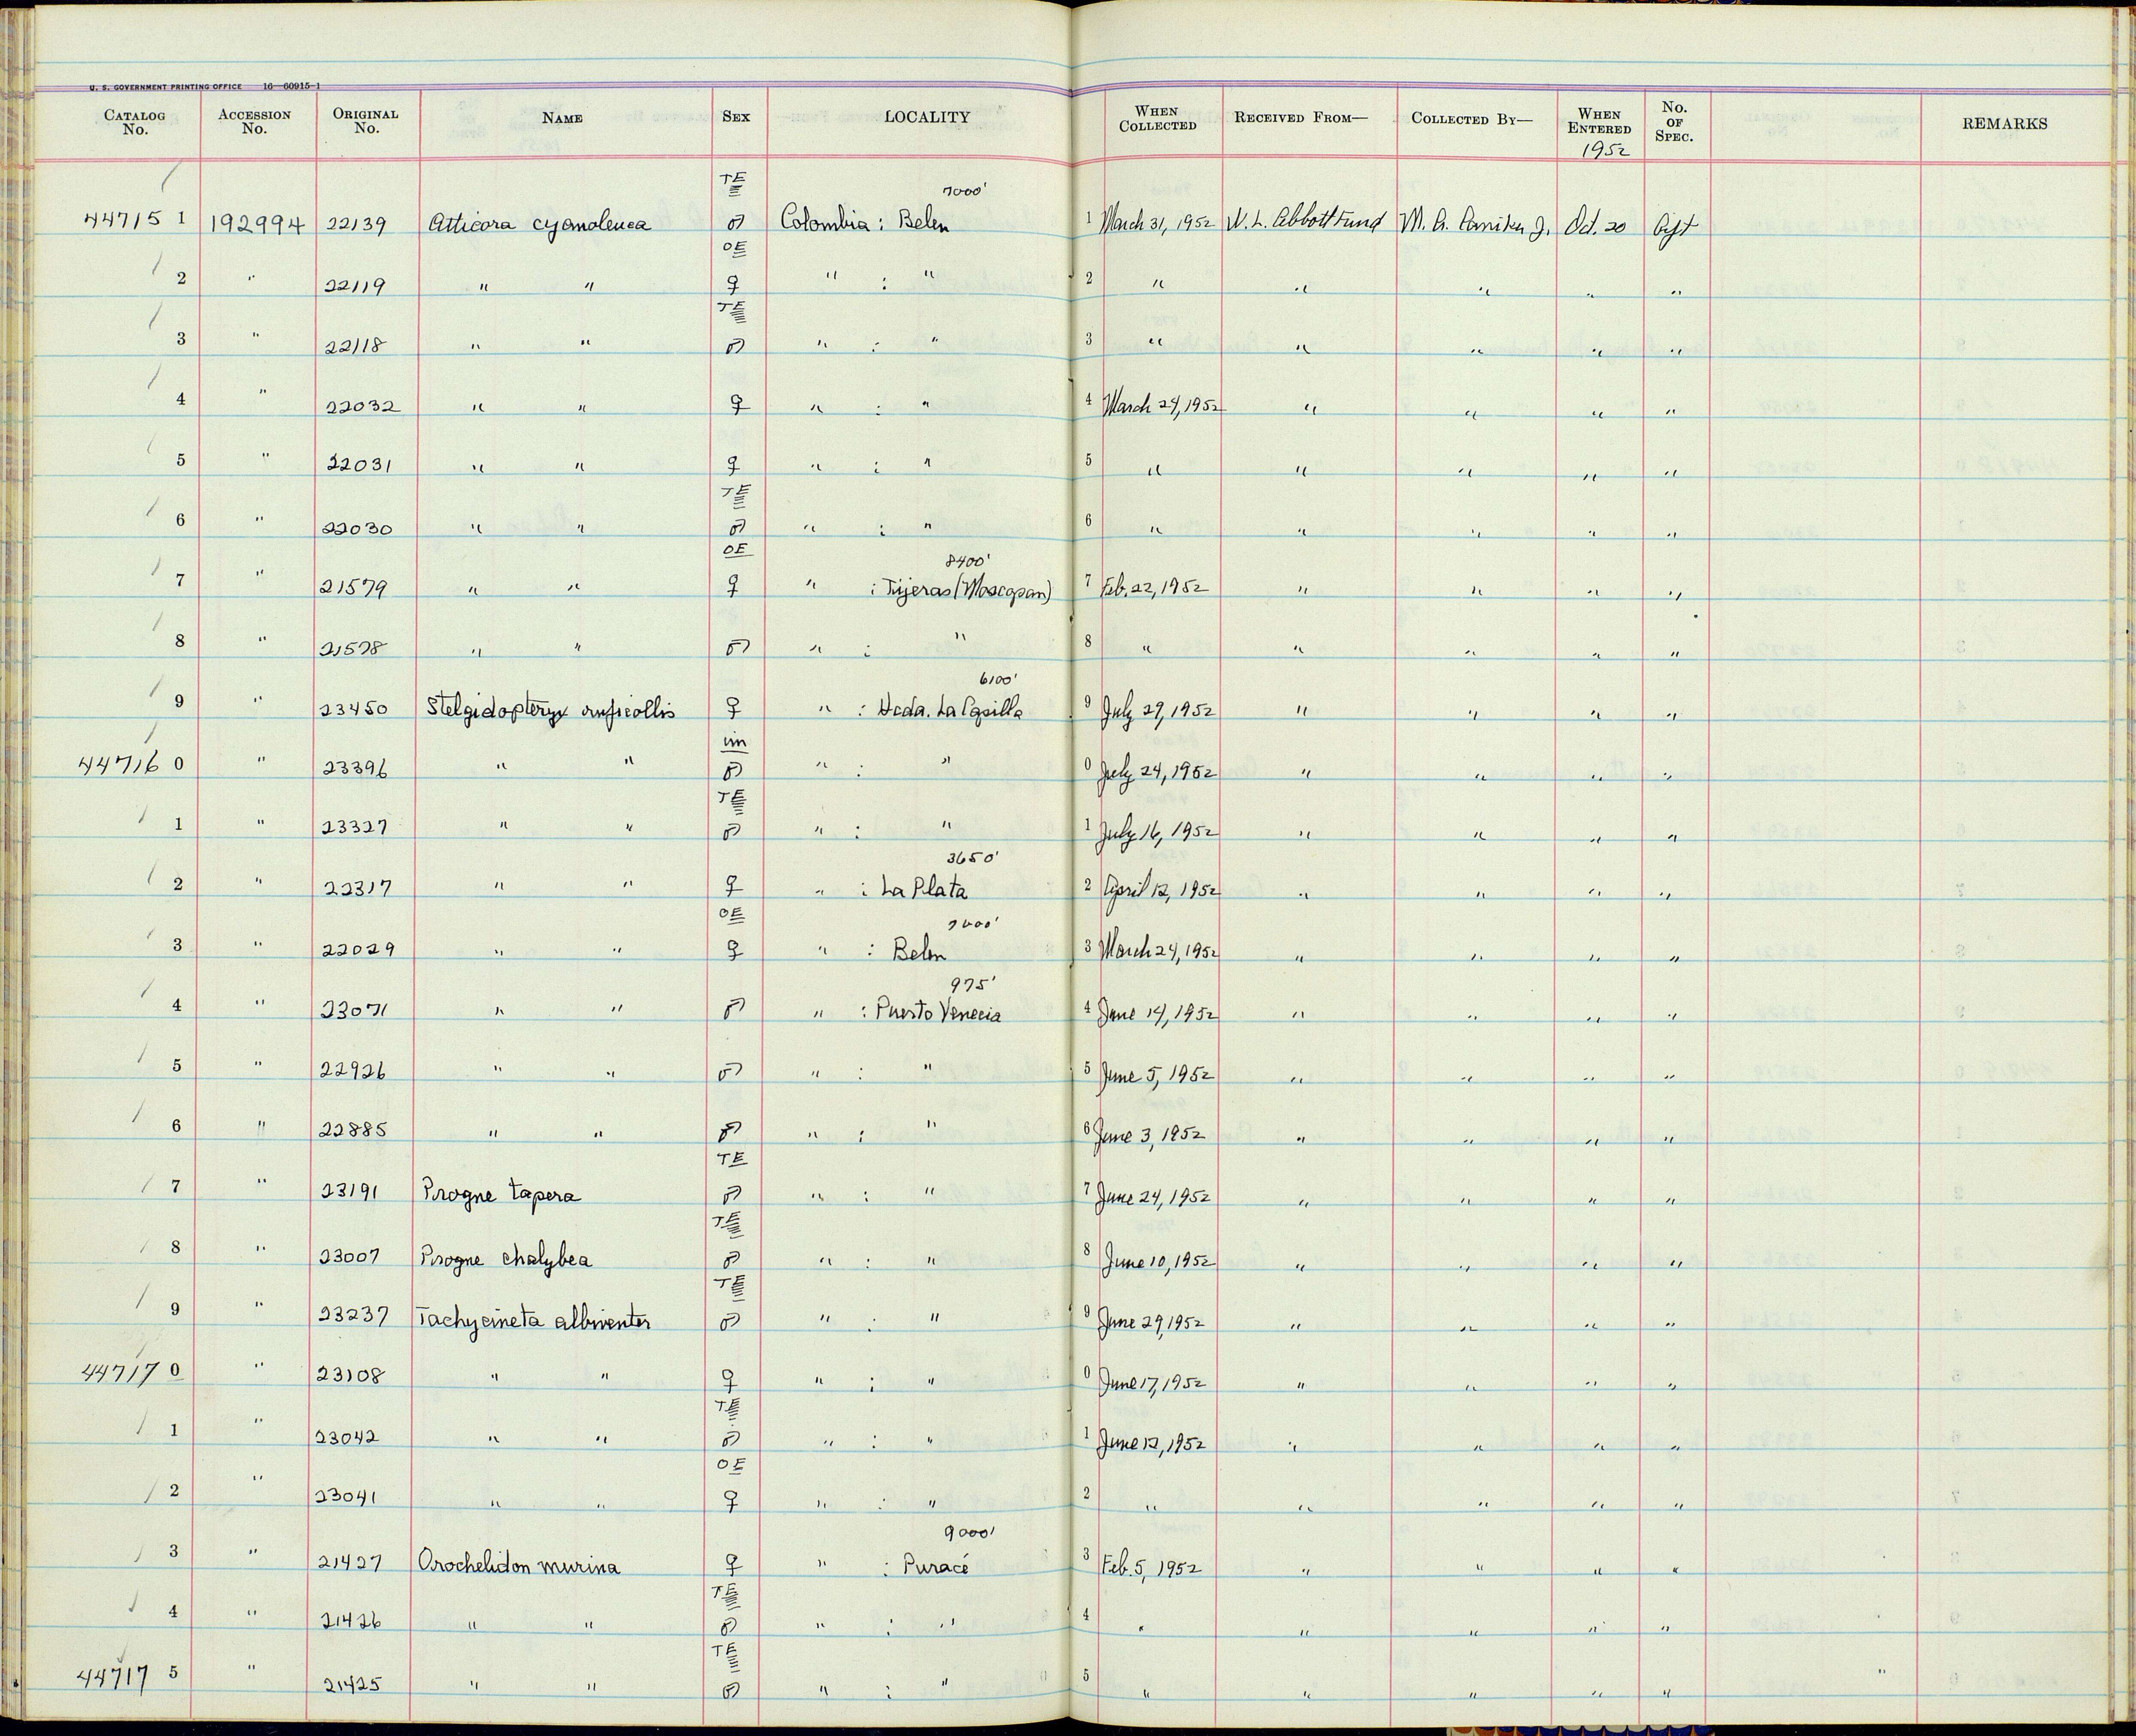 U. S. GOVERNMENT PRINTING OFFICE 16—60915-1
CATALOG No. ACCESSION No. ORIGINAL No. NAME SEX LOCALITY WHEN COLLECTED RECEIVED FROM— COLLECTED BY— WHEN ENTERED No. OF SPEC. REMARKS
1952
TE 7000'
44715 1 192994 22139 Atticora cyanoleuca ♂ Colombia : Belen 1 March 31, 1952 W. L. Abbott Fund M. A. Carriker Jr. Oct. 20 Gift
OE
2 " 22119 " " ♀ " : " 2 " " " " "
TE
3 " 22118 " " ♂ " : " 3 " " " " "
4 " 22032 " " ♀ " : " 4 March 24, 1952 " " " "
5 " 22031 " " ♀ " : " 5 " " " " "
TE
6 " 22030 " " ♂ " : " 6 " " " " "
OE 8400'
7 " 21579 " " ♀ " : Tijeras (Moscopan) 7 Feb. 22, 1952 " " " "
8 " 21578 " " ♂ " : " 8 " " " " "
6100'
9 " 23450 Stelgidopteryx ruficollis ♀ " : Hcda. La Capilla 9 July 29, 1952 " " " "
im
44716 0 " 23396 " " ♂ " : " 0 July 24, 1952 " " " "
TE
1 " 23327 " " ♂ " : " 1 July 16, 1952 " " " "
3650'
2 " 22317 " " ♀ " : La Plata 2 April 12, 1952 " " " "
OE 7000'
3 " 22029 " " ♀ " : Belen 3 March 24, 1952 " " " "
975'
4 " 23071 " " ♂ " : Puerto Venecia 4 June 14, 1952 " " " "
5 " 22926 " " ♂ " : " 5 June 5, 1952 " " " "
6 " 22885 " " ♂ " : " 6 June 3, 1952 " " " "
TE
7 " 23191 Progne tapera ♂ " : " 7 June 24, 1952 " " " "
TE
8 " 23007 Progne chalybea ♂ " : " 8 June 10, 1952 " " " "
TE
9 " 23237 Tachycineta albiventer ♂ " : " 9 June 29, 1952 " " " "
44717 0 " 23108 " " ♀ " : " 0 June 17, 1952 " " " "
TE
1 " 23042 " " ♂ " : " 1 June 12, 1952 " " " "
OE
2 " 23041 " " ♀ " : " 2 " " " " "
9000'
3 " 21427 Orochelidon murina ♀ " : Puracé 3 Feb. 5, 1952 " " " "
TE
4 " 21426 " " ♂ " : " 4 " " " " "
TE
44717 5 " 21425 " " ♂ " : " 5 " " " " " "